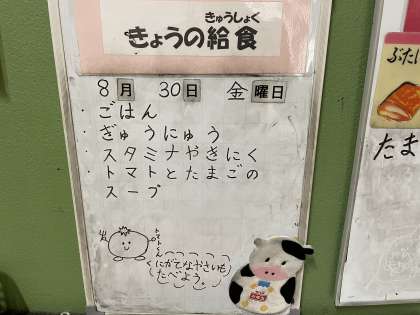 きゅうしょく
きょうの給食
8月 30日 金曜日
・ごはん
・ぎゅうにゅう
・スタミナやきにく
・トマトとたまごの
スープ
トマトくん
にがてなやさいも
たべよう。
ぶた
たま